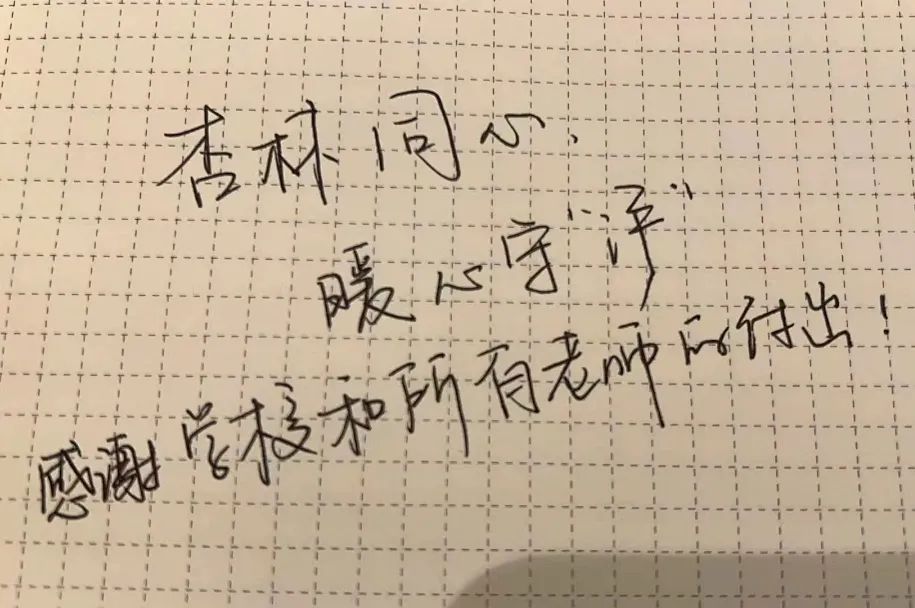 杏林同心.
暖心守“沪”
感谢学校和所有老师的付出!